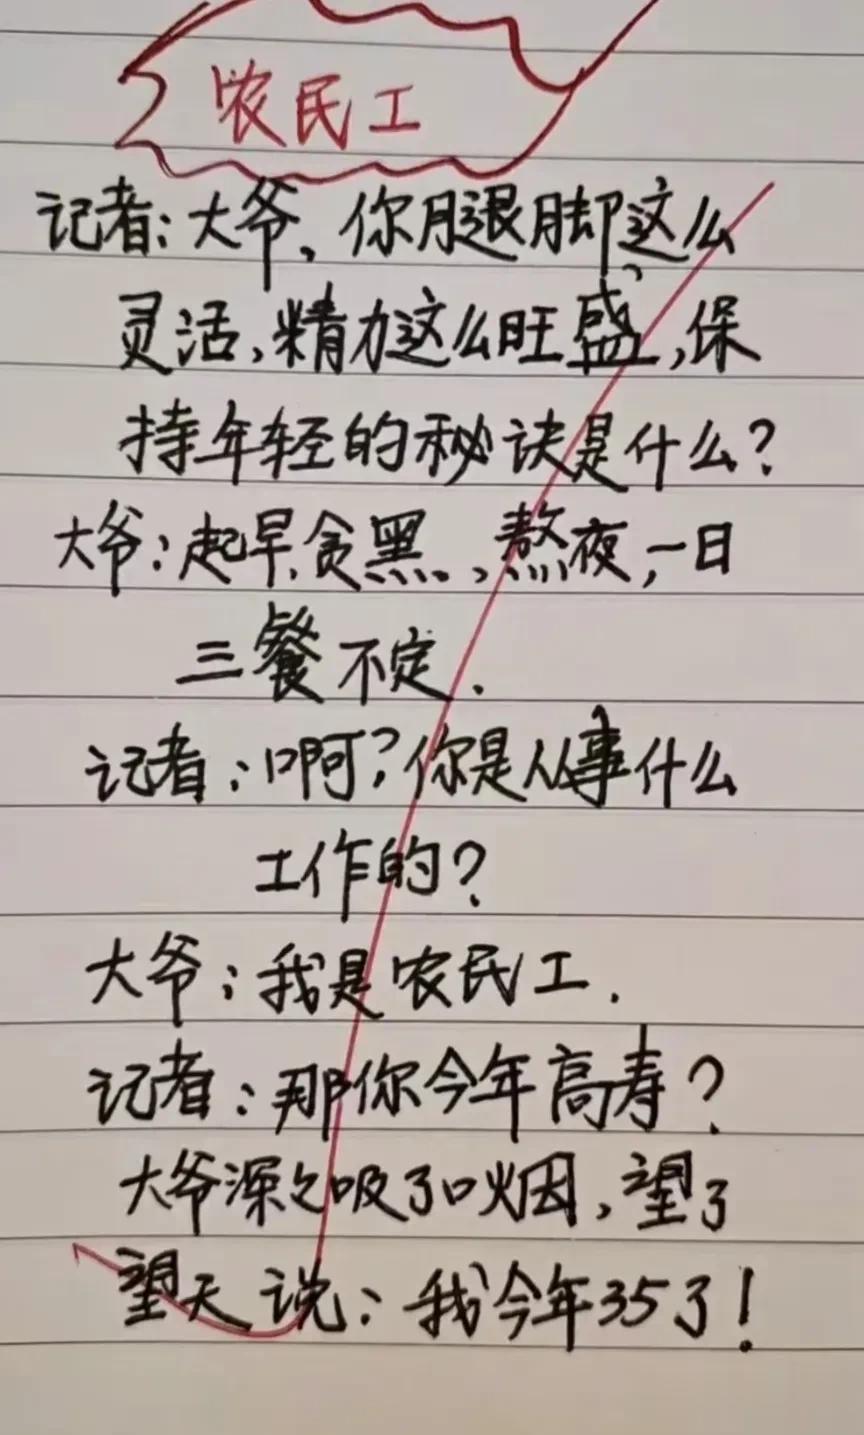 农民工
记者：大爷，你腿脚这么
灵活，精力这么旺盛，保
持年轻的秘诀是什么？
大爷：起早贪黑，熬夜，一日
三餐不定．
记者：啊？你是从事什么
工作的？
大爷：我是农民工．
记者：那你今年高寿？
大爷深々吸了口烟，望了
望天说：我今年35了！